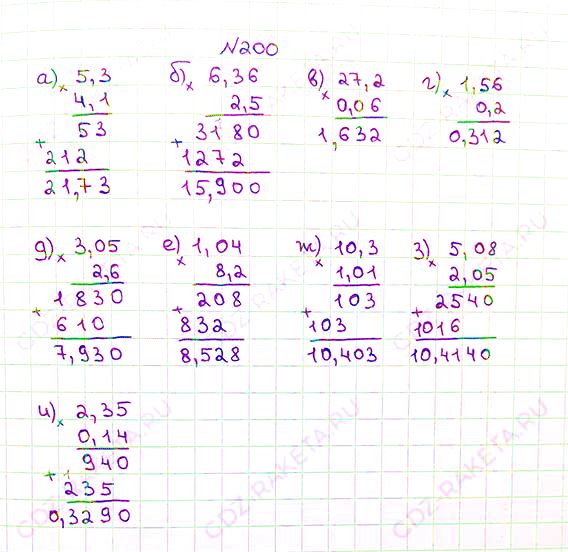 N200
а) × 5,3
4,1
53
+ 212
21,73
б) × 6,36
2,5
3180
+ 1272
15,900
в) × 27,2
0,06
1,632
г) × 1,56
0,2
0,312
д) × 3,05
2,6
1830
+ 610
7,930
е) × 1,04
8,2
208
+ 832
8,528
ж) × 10,3
1,01
103
+ 103
10,403
з) × 5,08
2,05
2540
+ 1016
10,4140
и) × 2,35
0,14
940
+ 235
0,3290
GDZ-RAKETA.RU